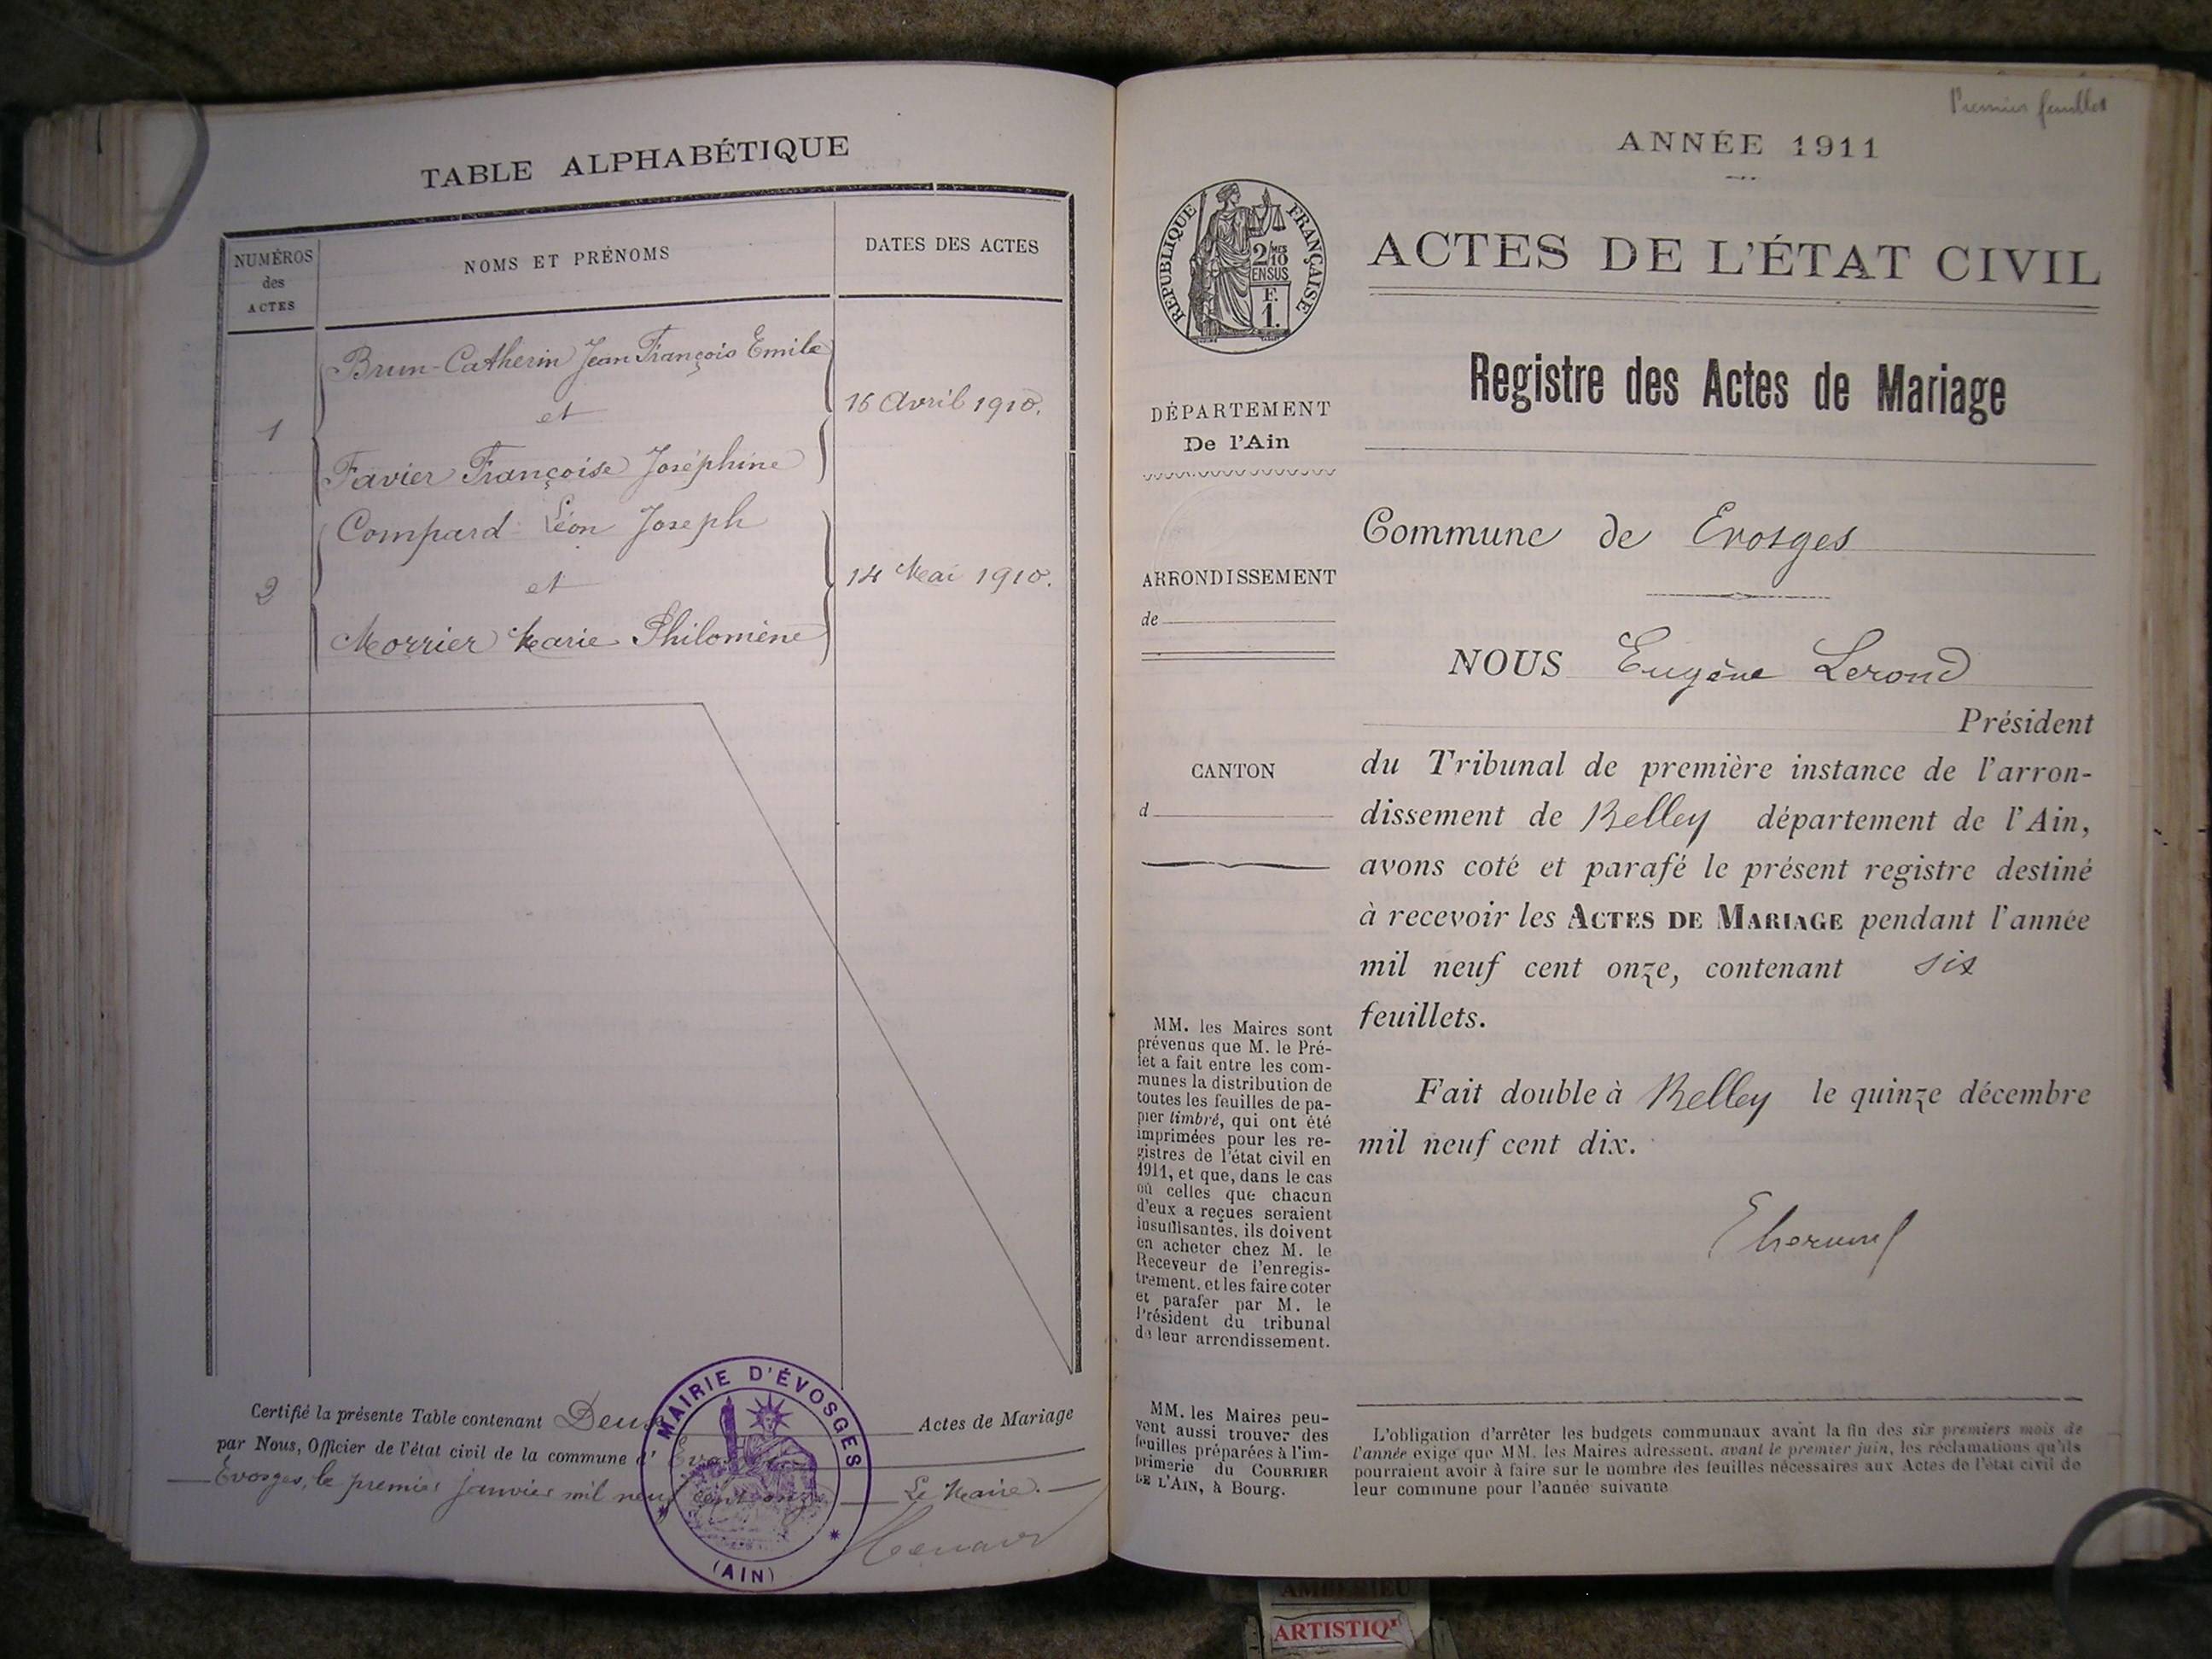 TABLE ALPHABÉTIQUE
NUMÉROS
des
ACTES
NOMS ET PRÉNOMS
DATES DES ACTES
Brun-Catherin Jean François Emile
1
et
16 Avril 1910.
Favier Françoise Joséphine
Compard Léon Joseph
2
et
14 Mai 1910.
Morrier Marie Philomène
Certifié la présente Table contenant Deux Actes de Mariage
par Nous, Officier de l'état civil de la commune d'
Evosges, le premier janvier mil neuf cent onze Le Maire.
MAIRIE D'ÉVOSGES
(AIN)
Premier feuillet
ANNÉE 1911
RÉPUBLIQUE FRANÇAISE
2/10
MES
EN SUS
F.
1.
ACTES DE L'ÉTAT CIVIL
Registre des Actes de Mariage
DÉPARTEMENT
De l'Ain
Commune de Evosges
ARRONDISSEMENT
de
NOUS Eugène Lerond
Président
CANTON
d
du Tribunal de première instance de l'arron-
dissement de Belley département de l'Ain,
avons coté et parafé le présent registre destiné
à recevoir les ACTES DE MARIAGE pendant l'année
mil neuf cent onze, contenant six
feuillets.
Fait double à Belley le quinze décembre
mil neuf cent dix.
MM. les Maires sont
prévenus que M. le Pré-
fet a fait entre les com-
munes la distribution de
toutes les feuilles de pa-
pier timbré, qui ont été
imprimées pour les re-
gistres de l'état civil en
1911, et que, dans le cas
où celles que chacun
d'eux a reçues seraient
insuffisantes, ils doivent
en acheter chez M. le
Receveur de l'enregis-
trement, et les faire coter
et parafer par M. le
Président du tribunal
de leur arrondissement.
MM. les Maires peu-
vent aussi trouver des
feuilles préparées à l'im-
primerie du COURRIER
DE L'AIN, à Bourg.
L'obligation d'arrêter les budgets communaux avant la fin des six premiers mois de
l'année exige que MM. les Maires adressent, avant le premier juin, les réclamations qu'ils
pourraient avoir à faire sur le nombre des feuilles nécessaires aux Actes de l'état civil de
leur commune pour l'année suivante
AMBERIEU
ARTISTIQ